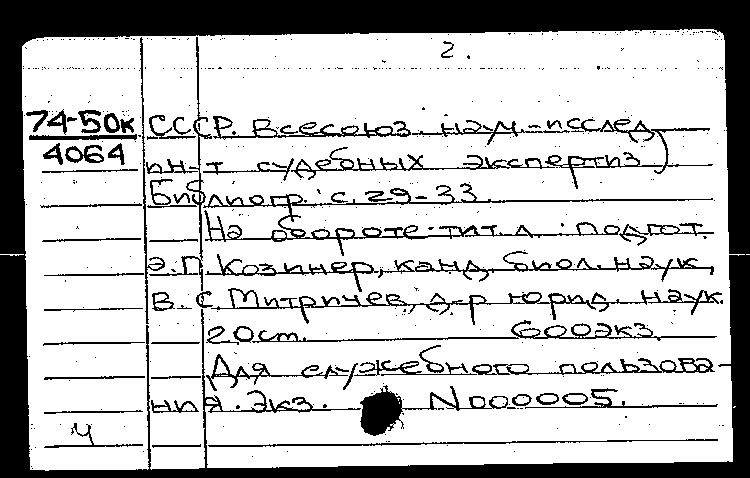 2.
74-50к СССР. Всесоюз. науч.-исслед
4064 ин-т судебных экспертиз)
Библиогр.: с. 29-33.
На обороте тит. л.: подгот.
Э.П. Козинер, канд. биол. наук,
В.С. Митричев, д-р юрид. наук.
20 см. 600 экз.
Для служебного пользова-
ния. Экз. N000005.
ч